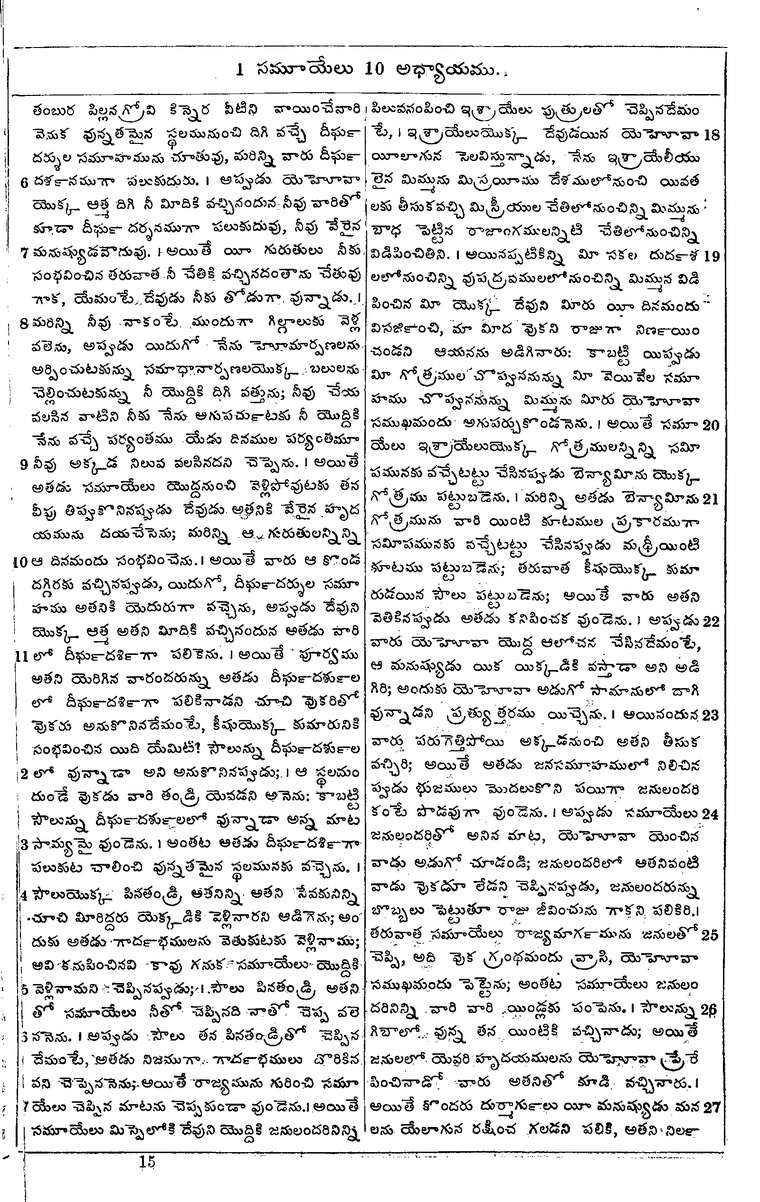 1 సమూయేలు 10 అధ్యాయము.
తంబుర పిల్లనగ్రోవి కిన్నెర వీటిని వాయించేవారి
వెనుక వున్నతమైన స్థలమునుంచి దిగి వచ్చే దీర్ఘ
దర్శుల సమూహమును చూతువు, మరిన్ని వారు దీర్ఘ
6 దర్శనముగా పలుకుదురు. । అప్పుడు యెహోవా
యొక్క ఆత్మ దిగి నీ మీదికి వచ్చినందున నీవు వారితో
కూడా దీర్ఘ దర్శనముగా పలుకుదువు, నీవు వేరైన
7 మనుష్యుడవౌదువు. । అయితే యీ గురుతులు నీకు
సంభవించిన తరువాత నీ చేతికి వచ్చినదంతాను చేతువు
గాక, యేమంటే దేవుడు నీకు తోడుగా వున్నాడు. ।
8 మరిన్ని నీవు నాకంటే ముందుగా గిల్గాలుకు వెళ్ల
వలెను, అప్పుడు యిదుగో నేను హెూమార్పణలను
అర్పించుటకున్ను సమాధానార్పణలయొక్క బలులను
చెల్లించుటకున్ను నీ యొద్దికి దిగి వత్తును; నీవు చేయ
వలసిన వాటిని నీకు నేను అగుపర్చుటకు నీ యొద్దికి
నేను వచ్చే పర్యంతము యేడు దినముల పర్యంతమూ
9 నీవు అక్కడ నిలువ వలసినదని చెప్పెను. । అయితే
అతడు సమూయేలు యొద్దనుంచి వెళ్లిపోవుటకు తన
వీపు తిప్పుకొనినప్పుడు దేవుడు అతనికి వేరైన హృద
యమును దయచేసెను; మరిన్ని ఆ గురుతులన్నిన్ని
10 ఆ దినమందు సంభవించెను. । అయితే వారు ఆ కొండ
దగ్గిరకు వచ్చినప్పుడు, యిదుగో, దీర్ఘదర్శుల సమూ
హము అతనికి యెదురుగా వచ్చెను, అప్పుడు దేవుని
యొక్క ఆత్మ అతని మీదికి వచ్చినందున అతడు వారి
11 లో దీర్ఘదర్శిగా పలికెను. । అయితే పూర్వము
అతని యెరిగిన వారందరున్ను అతడు దీర్ఘదర్శుల
లో దీర్ఘదర్శిగా పలికినాడని చూచి వొకరితో
వొకరు అనుకొనినదేమంటే, కీషుయొక్క కుమారునికి
సంభవించిన యిది యేమిటి? సౌలున్ను దీర్ఘదర్శుల
2 లో వున్నాడా అని అనుకొనినప్పుడు; । ఆ స్థలమం
దుండే వొకడు వారి తండ్రి యెవడని అనెను: కాబట్టి
సౌలున్ను దీర్ఘదర్శులలో వున్నాడా అన్న మాట
3 సామ్యమై వుండెను. । అంతట అతడు దీర్ఘదర్శిగా
పలుకుట చాలించి వున్నతమైన స్థలమునకు వచ్చెను. ।
4 సౌలుయొక్క పినతండ్రి, అతనిన్ని అతని సేవకునిన్ని
చూచి మీరిద్దరు యెక్కడికి వెళ్లినారని అడిగెను; అం
దుకు అతడు గార్దభములను వెతుకుటకు వెళ్లినాము;
అవి కనుపించినవి కావు గనుక సమూయేలు యొద్దికి
5 వెళ్లినామని చెప్పినప్పుడు; । సౌలు పినతండ్రి, అతని
తో సమూయేలు నీతో చెప్పినది నాతో చెప్ప వలె
3 ననెను. । అప్పుడు సౌలు తన పినతండ్రితో చెప్పిన
దేమంటే, అతడు నిజముగా గార్దభములు దొరికిన
వని చెప్పెననెను; అయితే రాజ్యమును గురించి సమూ
7 యేలు చెప్పిన మాటను చెప్పకుండా వుండెను. । అయితే
సమూయేలు మిస్పెలోకి దేవుని యొద్దికి జనులందరినిన్ని
పిలువనంపించి ఇశ్రాయేలు పుత్రులతో చెప్పినదేమం
టే, । ఇశ్రాయేలుయొక్క దేవుడయిన యెహోవా 18
యీలాగున సెలవిస్తున్నాడు, నేను ఇశ్రాయేలీయు
లైన మిమ్మును మిస్రయీము దేశములోనుంచి యివత
లకు తీసుకవచ్చి మిస్రీయుల చేతిలోనుంచిన్ని మిమ్మును
బాధ పెట్టిన రాజాంగములన్నిటి చేతిలోనుంచిన్ని
విడిపించితిని. । అయినప్పటికిన్ని మీ సకల దుర్దశ 19
లలోనుంచిన్ని వుపద్రవములలోనుంచిన్ని మిమ్మున విడి
పించిన మీ యొక్క దేవుని మీరు యీ దినమందు
విసర్జించి, మా మీద వొకని రాజుగా నిర్ణయిం
చండని ఆయనను అడిగినారు: కాబట్టి యిప్పుడు
మీ గోత్రముల చొప్పుననున్ను మీ వెయివేల సమూ
హము చొప్పుననున్ను మిమ్మును మీరు యెహోవా
సముఖమందు అగుపర్చుకొండనెను. । అయితే సమూ 20
యేలు ఇశ్రాయేలుయొక్క గోత్రములన్నిన్ని సమీ
పమునకు వచ్చేటట్టు చేసినప్పుడు బెన్యామీను యొక్క
గోత్రము పట్టుబడెను. । మరిన్ని అతడు బెన్యామీను 21
గోత్రమును వారి యింటి కూటముల ప్రకారముగా
సమీపమునకు వచ్చేటట్టు చేసినప్పుడు మథ్రీయింటి
కూటము పట్టుబడెను; తరువాత కీషుయొక్క కుమా
రుడయిన సౌలు పట్టుబడెను; అయితే వారు అతని
వెతికినప్పుడు అతడు కనిపించక వుండెను. । అప్పుడు 22
వారు యెహోవా యొద్ద ఆలోచన చేసినదేమంటే,
ఆ మనుష్యుడు యిక యిక్కడికి వస్తాడా అని అడి
గిరి; అందుకు యెహోవా అడుగో సామానులో దాగి
వున్నాడని ప్రత్యుత్తరము యిచ్చెను. । అయినందున 23
వారు పరుగెత్తిపోయి అక్కడనుంచి అతని తీసుక
వచ్చిరి; అయితే అతడు జనసమూహములో నిలిచిన
ప్పుడు భుజములు మొదలుకొని పయిగా జనులందరి
కంటే పొడవుగా వుండెను. । అప్పుడు సమూయేలు 24
జనులందర్తితో అనిన మాట, యెహోవా యెంచిన
వాడు అడుగో చూడండి; జనులందరిలో అతనివంటి
వాడు వొకడూ లేడని చెప్పినప్పుడు, జనులందరున్ను
బొబ్బలు పెట్టుతూ రాజు జీవించును గాకని పలికిరి. ।
తరువాత సమూయేలు రాజ్యమార్గమును జనులతో 25
చెప్పి, అది వొక గ్రంథమందు వ్రాసి, యెహోవా
సముఖమందు పెట్టెను; అంతట సమూయేలు జనులం
దరినిన్ని వారి వారి యిండ్లకు పంపెను. । సౌలున్ను 26
గిబాలో వున్న తన యింటికి వచ్చినాడు; అయితే
జనులలో యెవరి హృదయములను యెహోవా ప్రేరే
పించినాడో వారు అతనితో కూడి వచ్చినారు. ।
అయితే కొందరు దుర్మార్గులు యీ మనుష్యుడు మన 27
లను యేలాగున రక్షించ గలడని పలికి, అతని నిర్ల
15